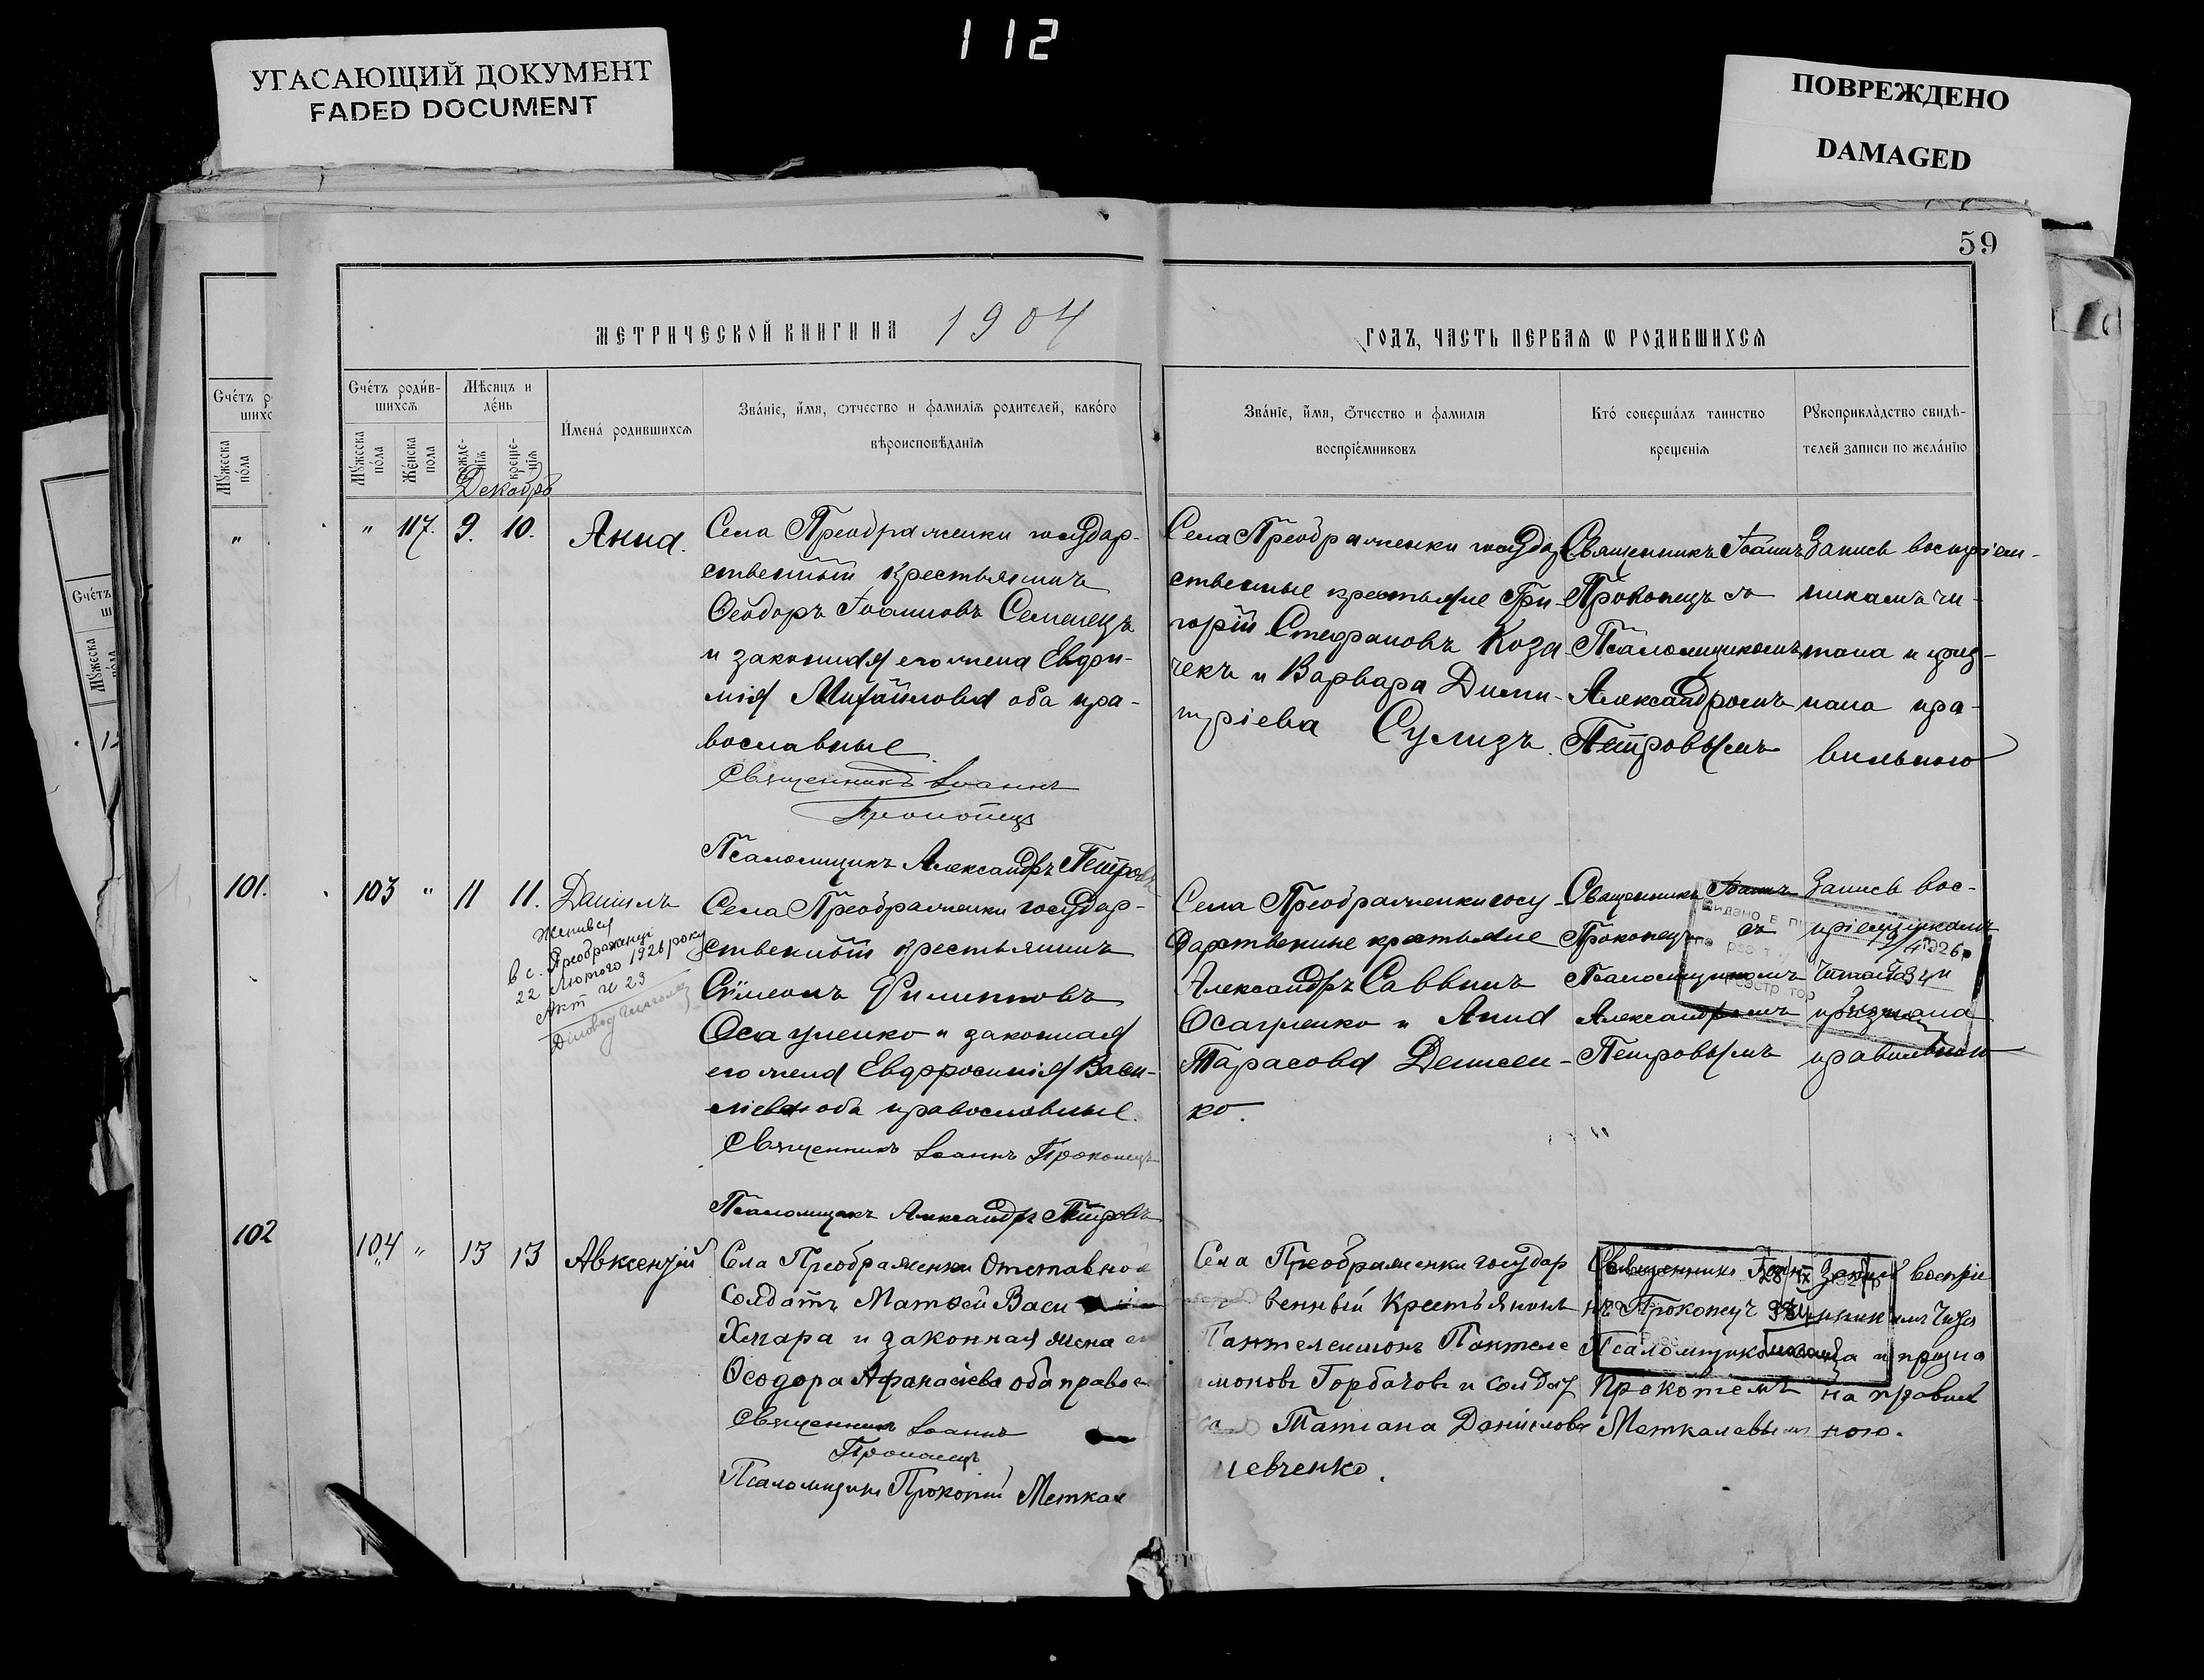 112
УГАСАЮЩИЙ ДОКУМЕНТ
FADED DOCUMENT
ПОВРЕЖДЕНО
DAMAGED
59
МЕТРИЧЕСКОЙ КНИГИ НА 1904
ГОДЪ, ЧАСТЬ ПЕРВАЯ Ѡ РОДИВШИХСЯ
Счетъ родив-
шихся
Мужеска
пола
Женска
пола
Мѣсяцъ и
день
рожде-
нія
креще-
нія
Декабрь
Имена родившихся
Званіе, имя, отчество и фамилія родителей, какого
вѣроисповѣданія
Званіе, имя, отчество и фамилія
воспріемниковъ
Кто совершалъ таинство
крещенія
Рукоприкладство свидѣ-
телей записи по желанію
" 117. 9. 10. Анна.
Села Преображенки государ-
ственный крестьянинъ
Ѳеодоръ Іоанновъ Семенецъ
и законная его жена Евфи-
мія Михайлова оба пра-
вославные
Священникъ Іоаннъ
Прокопецъ
Псаломщикъ Александръ Петровъ
Села Преображенки государ
ственные крестьяне Гри-
горій Стефановъ Коза
чекъ и Варвара Дими-
тріева
Священникъ Іоаннъ
Прокопецъ съ
Псаломщикомъ
Александромъ
Петровымъ
Запись воспріем-
никамъ чи-
тана и приз-
нана пра-
вильною
101.
103 " 11 11. Даніилъ
Женився
в с. Преображенці
22 Лютого 1926 року
Акт ч 23
Села Преображенки государ-
ственный крестьянинъ
Симеонъ Филипповъ
Осауленко и законная
его жена Евфросинія Васи-
ліева оба православные.
Священникъ Іоаннъ Прокопецъ
Псаломщикъ Александръ Петровъ
Села Преображенки госу-
дарственные крестьяне
Александръ Саввинъ
Осауленко и Анна
Тарасова Денисен-
ко.
Священникъ Іоаннъ
Прокопецъ съ
Псаломщикомъ
Александромъ
Петровымъ
Запись вос-
пріемникамъ
читана и
признана
правильною
102
104 " 13 13 Авксентій
Села Преображенки Отставной
Солдатъ Матѳей Васи
Хмара и законная жена ег
Ѳеодора Афанасіева оба правос
Священникъ Іоаннъ
Прокопецъ
Псаломщикъ Прокопій Меткал
Села Преображенки государ
венный Крестьянинъ
Пантелеимонъ Пантеле
моновъ Горбачовъ и солдат
Татіана Даніилова
Шевченко.
Священникъ Іоан
нъ Прокопецъ
Псаломщикомъ
Прокопіемъ
Меткалевымъ
Запись воспріе
никамъ Чита
на и призна
на правиль
ною.